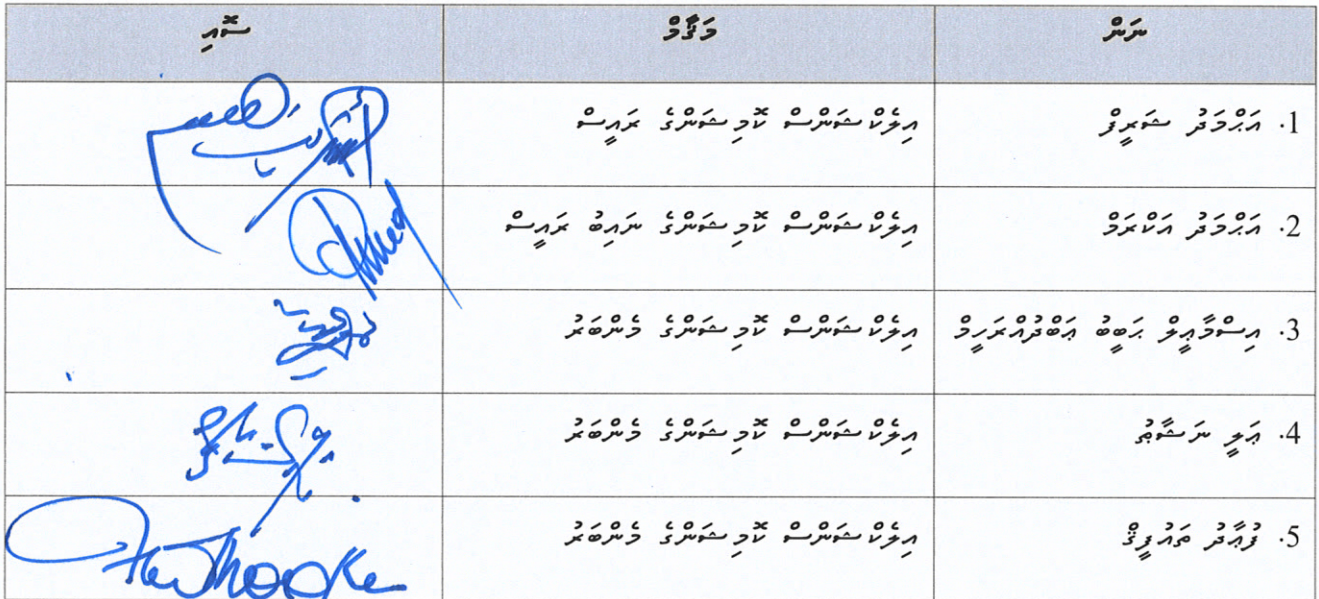 ނަން މަޤާމް ސޮއި
1. އަޙްމަދު ޝަރީފް އިލެކްޝަންސް ކޮމިޝަންގެ ރައީސް
2. އަޙްމަދު އަކްރަމް އިލެކްޝަންސް ކޮމިޝަންގެ ނައިބު ރައީސް
3. އިސްމާޢީލް ޙަބީބު ޢަބްދުއްރަހީމް އިލެކްޝަންސް ކޮމިޝަންގެ މެންބަރު
4. ޢަލީ ނަޝާޠު އިލެކްޝަންސް ކޮމިޝަންގެ މެންބަރު
5. ފުޢާދު ތައުފީޤް އިލެކްޝަންސް ކޮމިޝަންގެ މެންބަރު